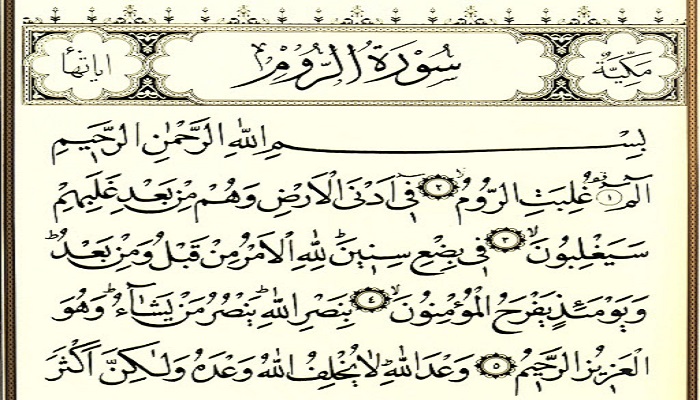 مكية سورة الروم اياتها
بسم الله الرحمن الرحيم
الم ١ غلبت الروم ٢ في ادنى الارض وهم من بعد غلبهم
سيغلبون ٣ في بضع سنين لله الامر من قبل ومن بعد
ويومئذ يفرح المؤمنون ٤ بنصر الله ينصر من يشاء وهو
العزيز الرحيم ٥ وعد الله لا يخلف الله وعده ولكن اكثر